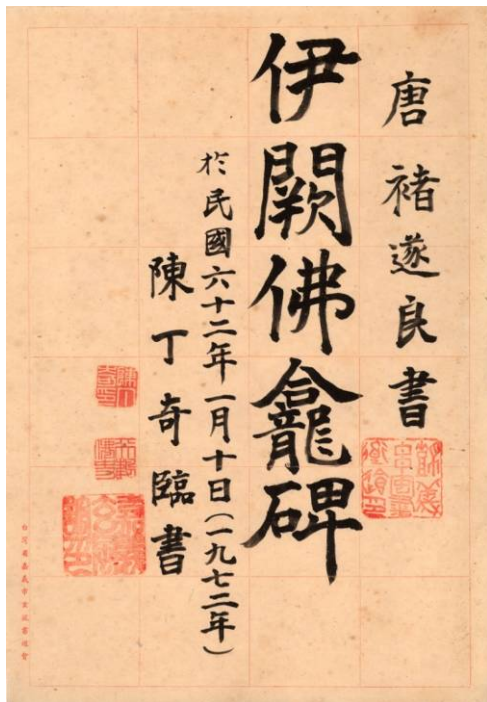 唐褚遂良書
伊闕佛龕碑
於民國六十二年一月十日(一九七二年)
陳丁奇臨書